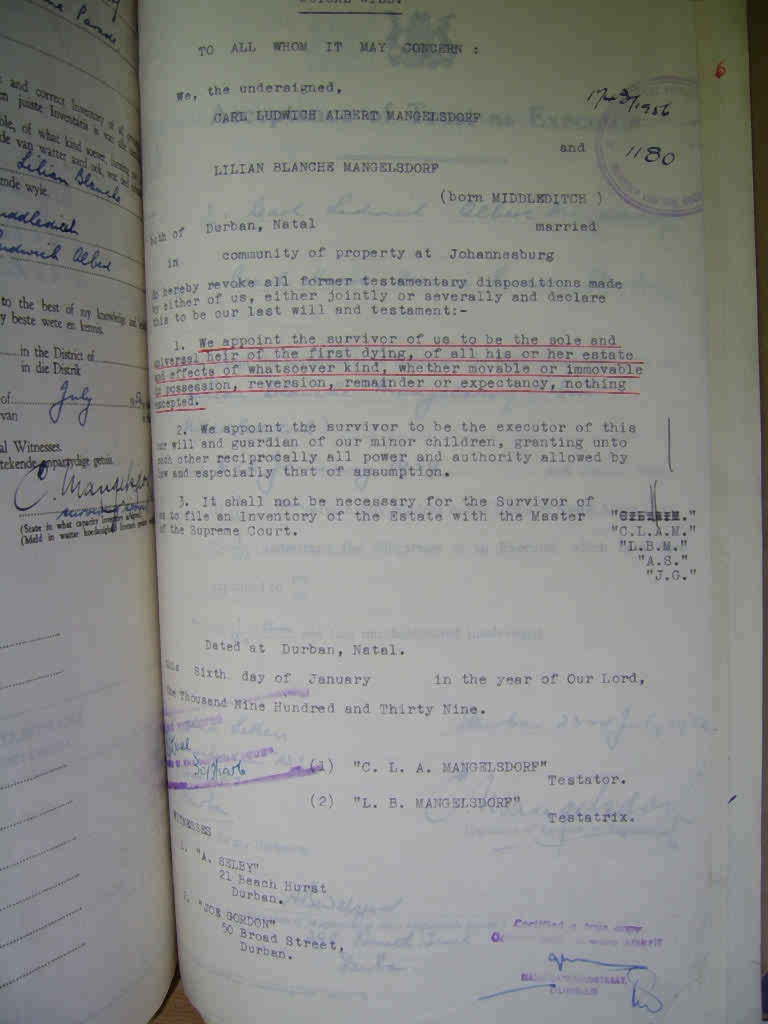 and correct Inventory of
juiste Inventaris is van
of what kind soever
van watter aard ook
Lilian Blanche
wyle.
Middleditch
Ludwich Albert
to the best of my knowledge and
beste wete en kennis.
in the District of
in die Distrik
of July
van
Witnesses.
onpartydige getuie.
C. Mangelsdorf
(State in what capacity
(Meld in watter hoedanigheid
TO ALL WHOM IT MAY CONCERN :
We, the undersigned,
17/3/1956
6
CARL LUDWICH ALBERT MANGELSDORF
and
1180
LILIAN BLANCHE MANGELSDORF
(born MIDDLEDITCH )
both of Durban, Natal married
in community of property at Johannesburg
do hereby revoke all former testamentary dispositions made
by either of us, either jointly or severally and declare
this to be our last will and testament:-
1. We appoint the survivor of us to be the sole and
universal heir of the first dying, of all his or her estate
and effects of whatsoever kind, whether movable or immovable
in possession, reversion, remainder or expectancy, nothing
excepted.
2. We appoint the survivor to be the executor of this
our will and guardian of our minor children, granting unto
each other reciprocally all power and authority allowed by
law and especially that of assumption.
3. It shall not be necessary for the Survivor of
us to file an Inventory of the Estate with the Master
of the Supreme Court.
"C.L.A.M."
"L.B.M."
"A.S."
"J.G."
Dated at Durban, Natal.
this Sixth day of January in the year of Our Lord,
One Thousand Nine Hundred and Thirty Nine.
(1) "C. L. A. MANGELSDORF"
Testator.
(2) "L. B. MANGELSDORF"
Testatrix.
WITNESSES
1. "A. SELBY"
21 Beach Hurst
Durban.
2. "JOE GORDON"
50 Broad Street,
Durban.
Certified a true copy